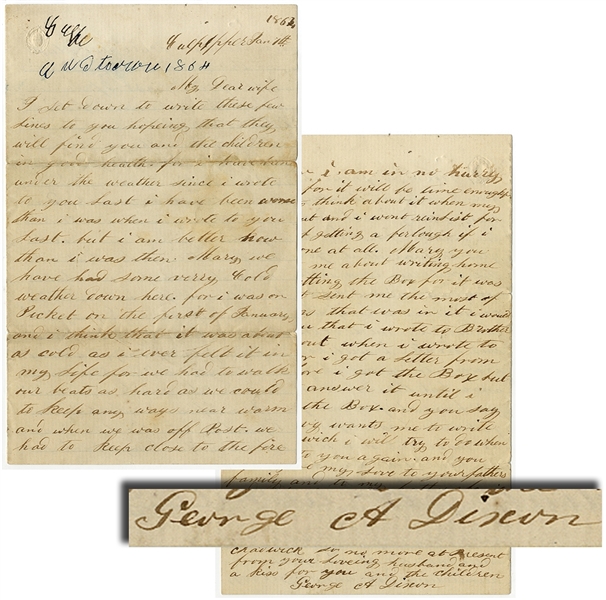 1864
Culpepper Jan 
1864
My Dear wife
I set down to write these few
lines to you hopeing that they
will find you and the children
in good health. for i have bene
under the weather since i wrote
to you last i have been worse
than i was when i wrote to you
last. but i am better now
than i was then Mary we
have had some verry Cold
weather down here. for i was on
Picket on the first of January
and i think that it was about
as cold as i ever felt it in
my life for we had to walk
our beats as hard as we could
to keep any ways near warm
and when we was off Post. we
had to keep close to the fire
i am in no hurry
for it will be time enough
think about it when my
and i wont reinlist for
getting a furlough if i
one at all. Mary you
me about writing home
getting the Box for it was
sent me the most of
that was in it i would
you that i wrote to Brother
but when i wrote to
i got a letter from
i got the Box but
answer it until i
the Box. and you say
wants me to write
which i will try to do when
to you again. and you
my love to your fathers
family and to
George A Dixon
so no more at Present
from your loveing husband and
a kiss for you and the children
George A Dixon